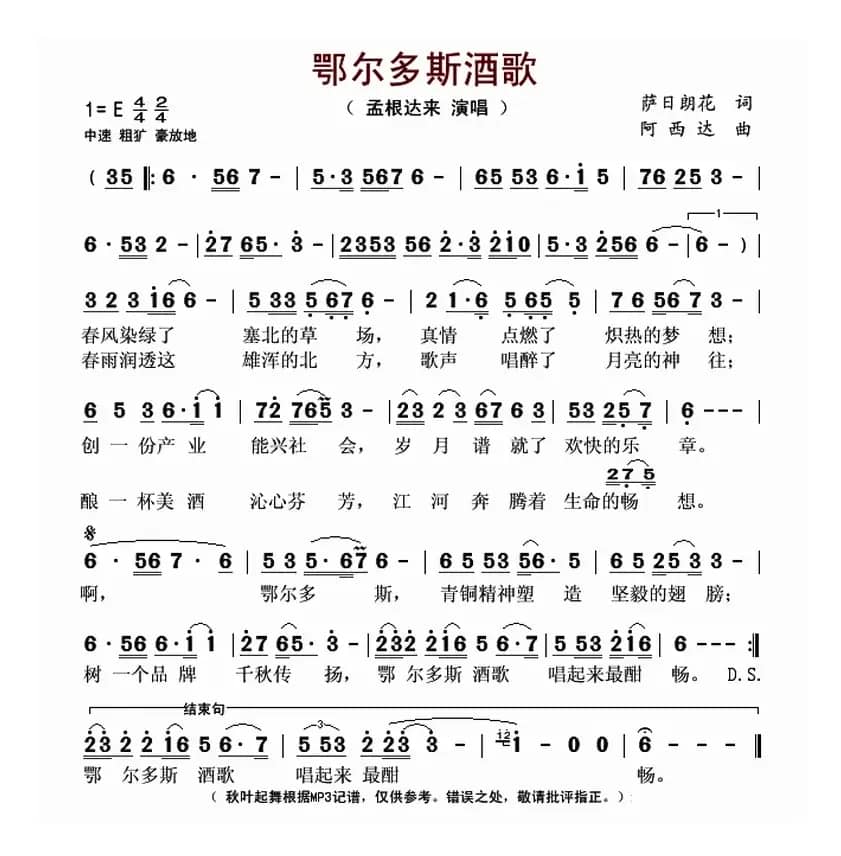 鄂尔多斯酒歌
（ 孟根达来 演唱 ）
1=E 4/4 2/4
萨日朗花 词
中速 粗犷 豪放地
阿西达 曲
( 35 ‖: 6 · 56 7 - | 5·3 567 6 - | 65 53 6·1 5 | 76 25 3 - |
6 · 53 2 - | 27 65· 3 - | 2353 56 2·3 210 | 5·3 256 6 - | 6 - ) |
3 2 3 16 6 - | 5 33 5 67 6 - | 2 1·6 5 65 5 | 7 6 56 7 3 - |
春风染绿了 塞北的草 场， 真情 点燃了 炽热的梦 想；
春雨润透这 雄浑的北 方， 歌声 唱醉了 月亮的神 往；
6 5 3 6·1 1 | 72 765 3 - | 23 2 3 67 6 3 | 53 25 7 | 6 - - - |
创 一 份产 业 能兴社 会， 岁 月 谱 就了 欢快的乐 章。
27 5
酿 一 杯美 酒 沁心芬 芳， 江 河 奔 腾着 生命的畅 想。
6 · 56 7 · 6 | 5 3 5· 67 6 - | 65 53 56· 5 | 65 25 3 3 - |
啊， 鄂尔多 斯， 青铜精神塑 造 坚毅的翅 膀；
6 · 56 6·1 1 | 27 65· 3 - | 232 2 16 5 6·7 | 5 53 2 16 | 6 - - - :‖
树 一个品 牌 千秋传 扬， 鄂 尔多斯 酒歌 唱起来最酣 畅。 D.S.
结束句
23 2 2 16 5 6·7 | 5 53 2 23 3 - | 1 - 0 0 | 6 - - - ‖
鄂 尔多斯 酒歌 唱起来 最酣 畅。
（ 秋叶起舞根据MP3记谱，仅供参考。错误之处，敬请批评指正。）